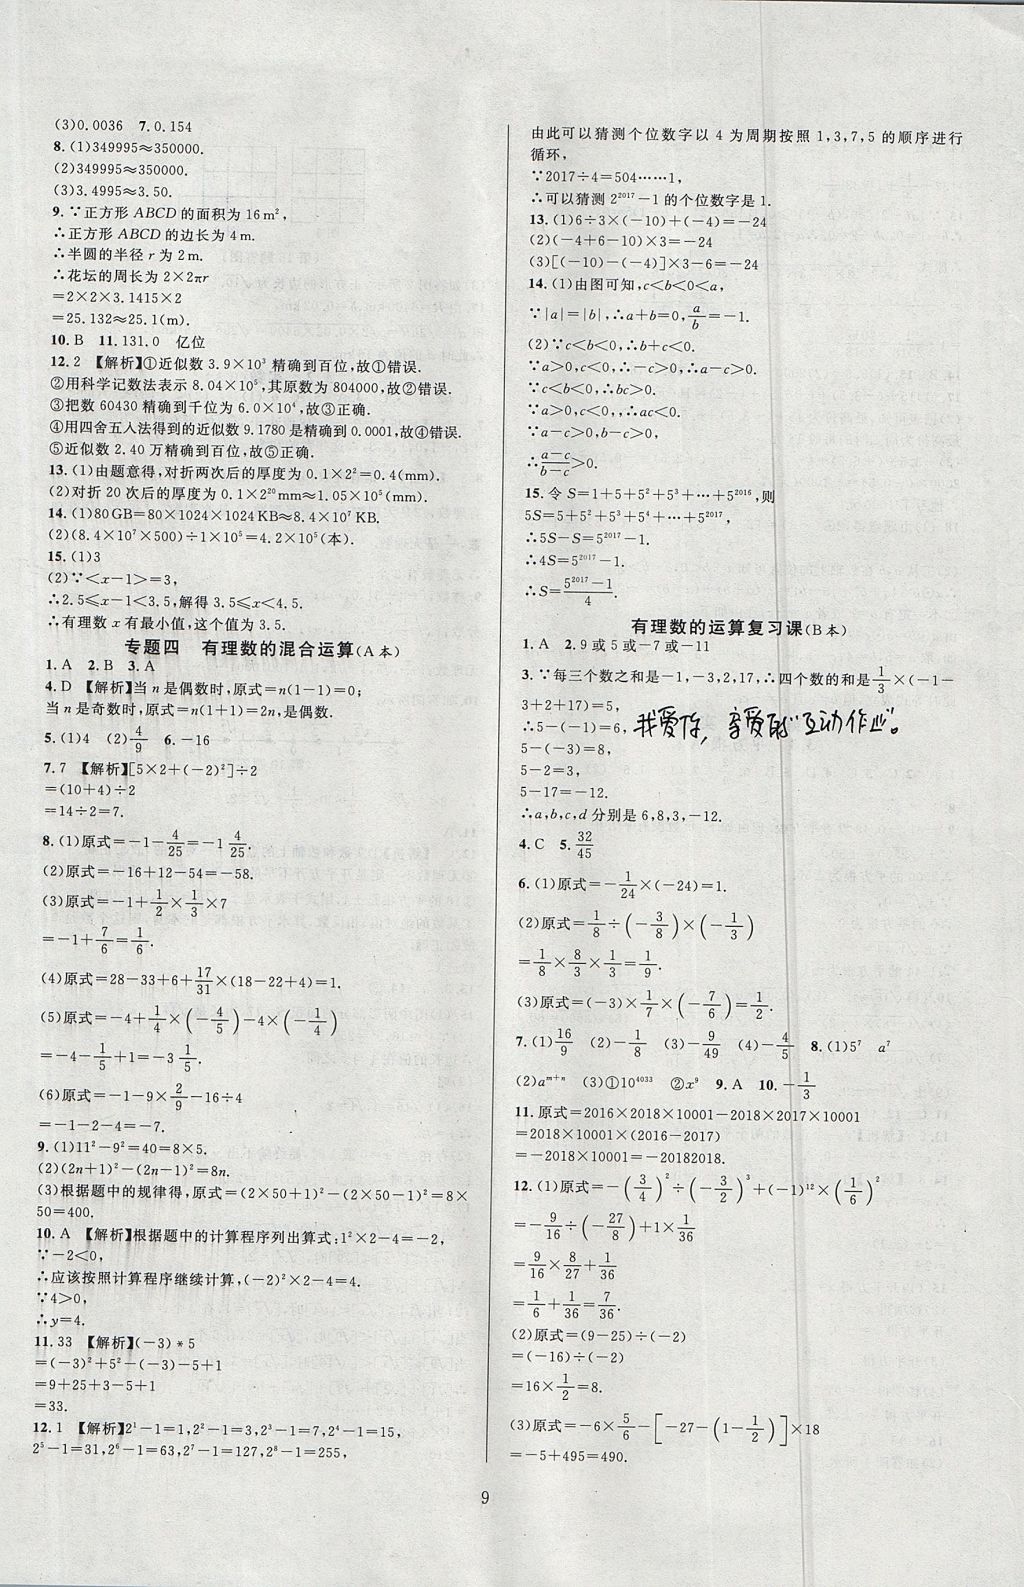 (3)0.0036　7.0.154
8.(1)349995≈350000.
(2)349995≈350000.
(3)3.4995≈3.50.
9.∵正方形ABCD的面积为16m²,
∴正方形ABCD的边长为4m.
∴半圆的半径r为2m.
∴花坛的周长为2×2πr
=2×2×3.1415×2
=25.132≈25.1(m).
10.B　11.131.0　亿位
12.2　【解析】①近似数3.9×10³精确到百位,故①错误.
②用科学记数法表示8.04×10⁵,其原数为804000,故②错误.
③把数60430精确到千位为6.0×10⁴,故③正确.
④用四舍五入法得到的近似数9.1780是精确到0.0001,故④错误.
⑤近似数2.40万精确到百位,故⑤正确.
13.(1)由题意得,对折两次后的厚度为0.1×2²=0.4(mm).
(2)对折20次后的厚度为0.1×2²⁰mm≈1.05×10⁵(mm).
14.(1)80GB=80×1024×1024KB≈8.4×10⁷KB.
(2)(8.4×10⁷×500)÷1×10⁵=4.2×10⁵(本).
15.(1)3
(2)∵<x-1>=3,
∴2.5≤x-1<3.5,解得3.5≤x<4.5.
∴有理数x有最小值,这个值为3.5.
专题四　有理数的混合运算(A本)
1.A　2.B　3.A
4.D　【解析】当n是偶数时,原式=n(1-1)=0;
当n是奇数时,原式=n(1+1)=2n,是偶数.
5.(1)4　(2)4/9　6.-16
7.7　【解析】[5×2+(-2)²]÷2
=(10+4)÷2
=14÷2=7.
8.(1)原式=-1-4/25=-1 4/25.
(2)原式=-16+12-54=-58.
(3)原式=-1+1/2×1/3×7
=-1+7/6=1/6.
(4)原式=28-33+6+17/31×(18-22+4)=1.
(5)原式=-4+1/4×(-4/5)-4×(-1/4)
=-4-1/5+1=-3 1/5.
(6)原式=-1-9×2/9-16÷4
=-1-2-4=-7.
9.(1)11²-9²=40=8×5.
(2)(2n+1)²-(2n-1)²=8n.
(3)根据题中的规律得,原式=(2×50+1)²-(2×50-1)²=8×
50=400.
10.A　【解析】根据题中的计算程序列出算式:1²×2-4=-2,
∵-2<0,
∴应该按照计算程序继续计算,(-2)²×2-4=4.
∵4>0,
∴y=4.
11.33　【解析】(-3)*5
=(-3)²+5²-(-3)-5+1
=9+25+3-5+1
=33.
12.1　【解析】2¹-1=1,2²-1=3,2³-1=7,2⁴-1=15,
2⁵-1=31,2⁶-1=63,2⁷-1=127,2⁸-1=255,
由此可以猜测个位数字以4为周期按照1,3,7,5的顺序进行
循环,
∵2017÷4=504……1,
∴可以猜测2²⁰¹⁷-1的个位数字是1.
13.(1)6÷3×(-10)+(-4)=-24
(2)(-4+6-10)×3=-24
(3)[(-10)-(-4)]×3-6=-24
14.(1)由图可知,c<b<0<a,
∵|a|=|b|,∴a+b=0,a/b=-1.
(2)∵c<b<0,∴b-c>0.
∵a>0,c<0,∴a-c>0.
∵c<b<0,∴bc>0.
∵a>0,c<0,∴ac<0.
∴a-c/b-c>0.
15.令S=1+5+5²+5³+…+5²⁰¹⁶,则
5S=5+5²+5³+5⁴+…+5²⁰¹⁷,
∴5S-S=5²⁰¹⁷-1.
∴4S=5²⁰¹⁷-1.
∴S=5²⁰¹⁷-1/4.
有理数的运算复习课(B本)
1.A　2.9或5或-7或-11
3.∵每三个数之和是-1,-3,2,17,∴四个数的和是1/3×(-1-
3+2+17)=5,
∴5-(-1)=6,
我爱你,亲爱的"互动作业"。
5-(-3)=8,
5-2=3,
5-17=-12.
∴a,b,c,d分别是6,8,3,-12.
4.C　5.32/45
6.(1)原式=-1/24×(-24)=1.
(2)原式=1/8÷(-3/8)×(-1/3)
=1/8×8/3×1/3=1/9.
(3)原式=(-3)×1/7×(-7/6)=1/2.
7.(1)16/9　(2)-1/8　(3)-9/49　(4)-4/5　8.(1)5⁷　a⁷
(2)aᵐ⁺ⁿ　(3)①10⁴⁰³³　②x⁹　9.A　10.-1/3
11.原式=2016×2018×10001-2018×2017×10001
=2018×10001×(2016-2017)
=-2018×10001=-20182018.
12.(1)原式=-(3/4)²÷(-3/2)³+(-1)¹²×(1/6)²
=-9/16÷(-27/8)+1×1/36
=9/16×8/27+1/36
=1/6+1/36=7/36.
(2)原式=(9-25)÷(-2)
=(-16)÷(-2)
=16×1/2=8.
(3)原式=-6×5/6-[-27-(1-1/2)]×18
=-5+495=490.
9